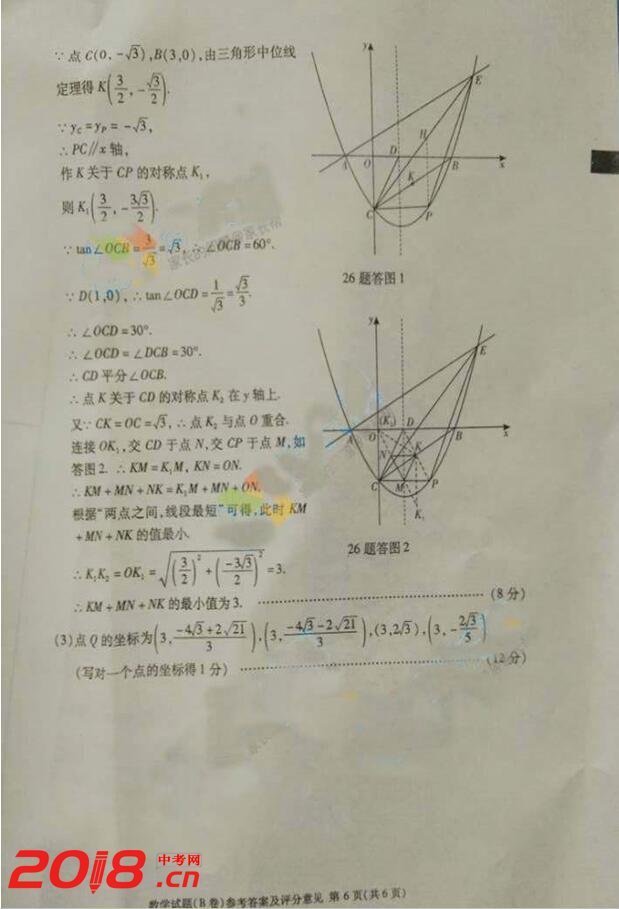 ∵ 点 C(0, -√3), B(3,0), 由三角形中位线
定理得 K(3/2, -√3/2).
∵ y_C = y_P = -√3,
∴ PC∥x 轴,
作 K 关于 CP 的对称点 K₁,
则 K₁(3/2, -3√3/2).
∵ tan∠OCB = 3/√3 = √3, ∴ ∠OCB = 60°.
∵ D(1,0), ∴ tan∠OCD = 1/√3 = √3/3.
∴ ∠OCD = 30°.
∴ ∠OCD = ∠DCB = 30°.
∴ CD 平分∠OCB.
∴ 点 K 关于 CD 的对称点 K₂ 在 y 轴上.
又∵ CK = OC = √3, ∴ 点 K₂ 与点 O 重合.
连接 OK₁, 交 CD 于点 N, 交 CP 于点 M, 如
答图 2. ∴ KM = K₁M, KN = ON.
∴ KM + MN + NK = K₁M + MN + ON.
根据“两点之间,线段最短”可得,此时 KM
+ MN + NK 的值最小.
∴ K₁K₂ = OK₁ = √((3/2)² + (-3√3/2)²) = 3.
∴ KM + MN + NK 的最小值为 3. (8 分)
(3) 点 Q 的坐标为(3, (-4√3+2√21)/3), (3, (-4√3-2√21)/3), (3,2√3), (3, -2√3/5)
(写对一个点的坐标得 1 分) (12 分)
y
E
H
A
O
D
B
x
K
C
P
26 题答图 1
y
E
(K₂)
A
O
D
B
x
N
K
C
M
P
K₁
26 题答图 2
2018.中考网
zk.cn
数学试题(B 卷)参考答案及评分意见 第 6 页(共 6 页)